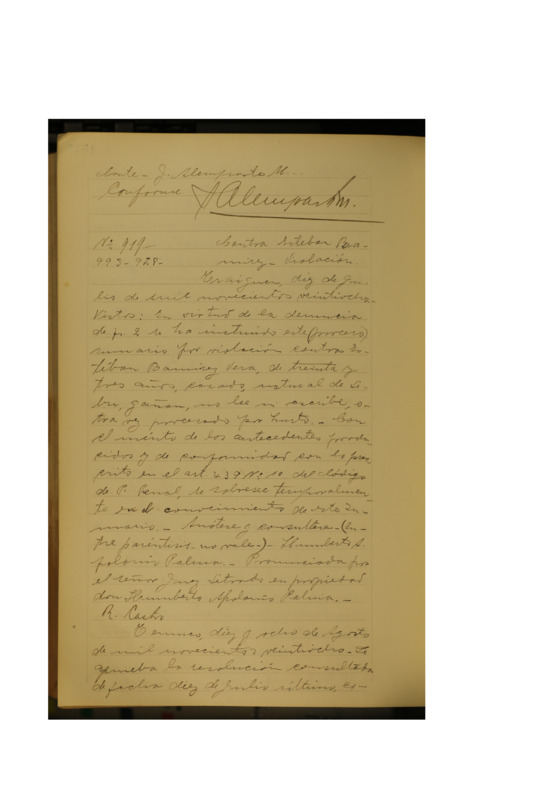 cante - J. Alemparte M...
Conforme J Alemparte M.
Nº 919-
993-928-
Contra Esteban Ra-
mirez - Violación
Traiguen, diez de Ju-
lio de mil novecientos veintiocho.
Vistos: En virtud de la denuncia
de fs. 2 se ha instruido este (proceso)
sumario por violación contra Es-
téban Ramirez Vera, de treinta y
tres años, casado, natural de
gañan, no lee ni escribe, o-
tra vez procesado por hurto. - Con
el mérito de los antecedentes produ-
cidos y de conformidad con lo pres
crito en el art. 439 Nº 10 del Código
de P. Penal, se sobresee temporalmen-
te en el conocimiento de este su-
mario. - Anótese y consúltese. - (En-
tre paréntesis - no vale -) - Humberto A-
polonio Palma. - Pronunciada por
el señor Juez Letrado en propiedad
don Humberto Apolonio Palma. -
R. Castro
Temuco, diez y ocho de Agosto
de mil novecientos veintiocho. - Se
aprueba la resolución consultada
de fecha diez de Julio último, es-